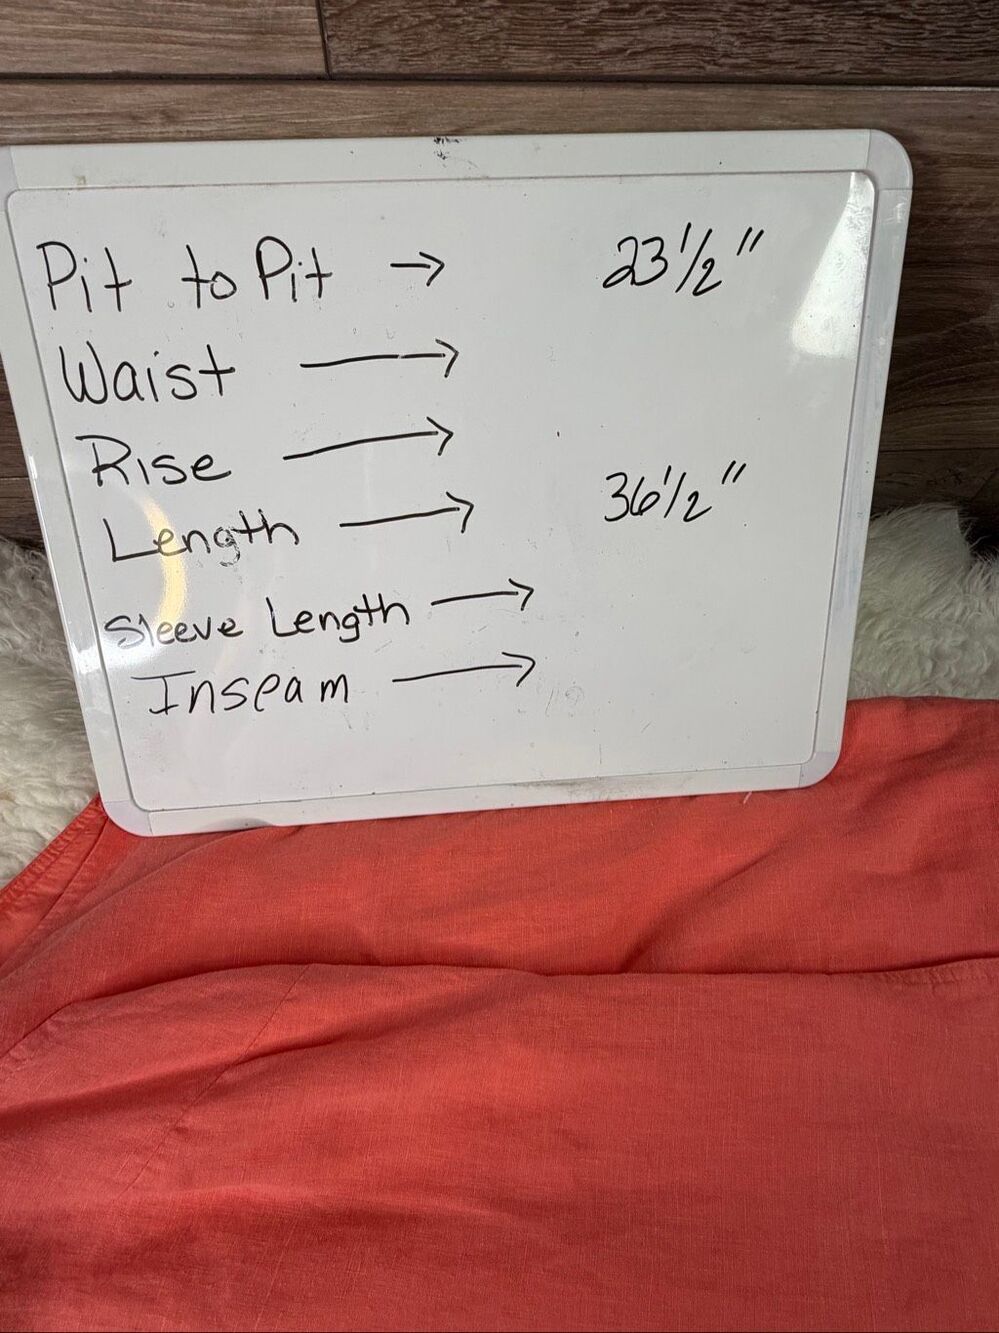 Pit to Pit → 23 1/2"
Waist →
Rise →
Length → 36 1/2"
Sleeve Length →
Inseam →